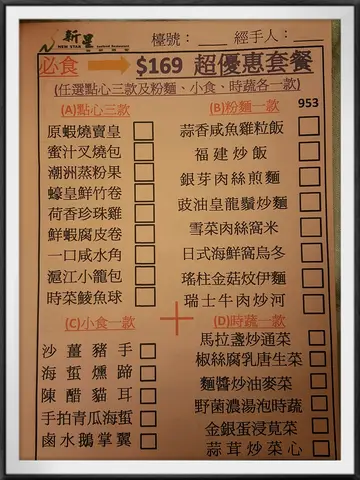 新星
NEW STAR Seafood Restaurant
檯號： 經手人：
必食 $169 超優惠套餐
(任選點心三款及粉麵、小食、時蔬各一款)
(A)點心三款
原蝦燒賣皇
蜜汁叉燒包
潮洲蒸粉果
蠔皇鮮竹卷
荷香珍珠雞
鮮蝦腐皮卷
一口咸水角
滬江小籠包
時菜鯪魚球
(B)粉麵一款 953
蒜香咸魚雞粒飯
福建炒飯
銀芽肉絲煎麵
豉油皇龍鬚炒麵
雪菜肉絲窩米
日式海鮮窩烏冬
瑤柱金菇炆伊麵
瑞士牛肉炒河
(C)小食一款
沙薑豬手
海蜇燻蹄
陳醋貓耳
手拍青瓜海蜇
鹵水鵝掌翼
(D)時蔬一款
馬拉盞炒通菜
椒絲腐乳唐生菜
麵醬炒油麥菜
野菌濃湯泡時蔬
金銀蛋浸莧菜
蒜茸炒菜心